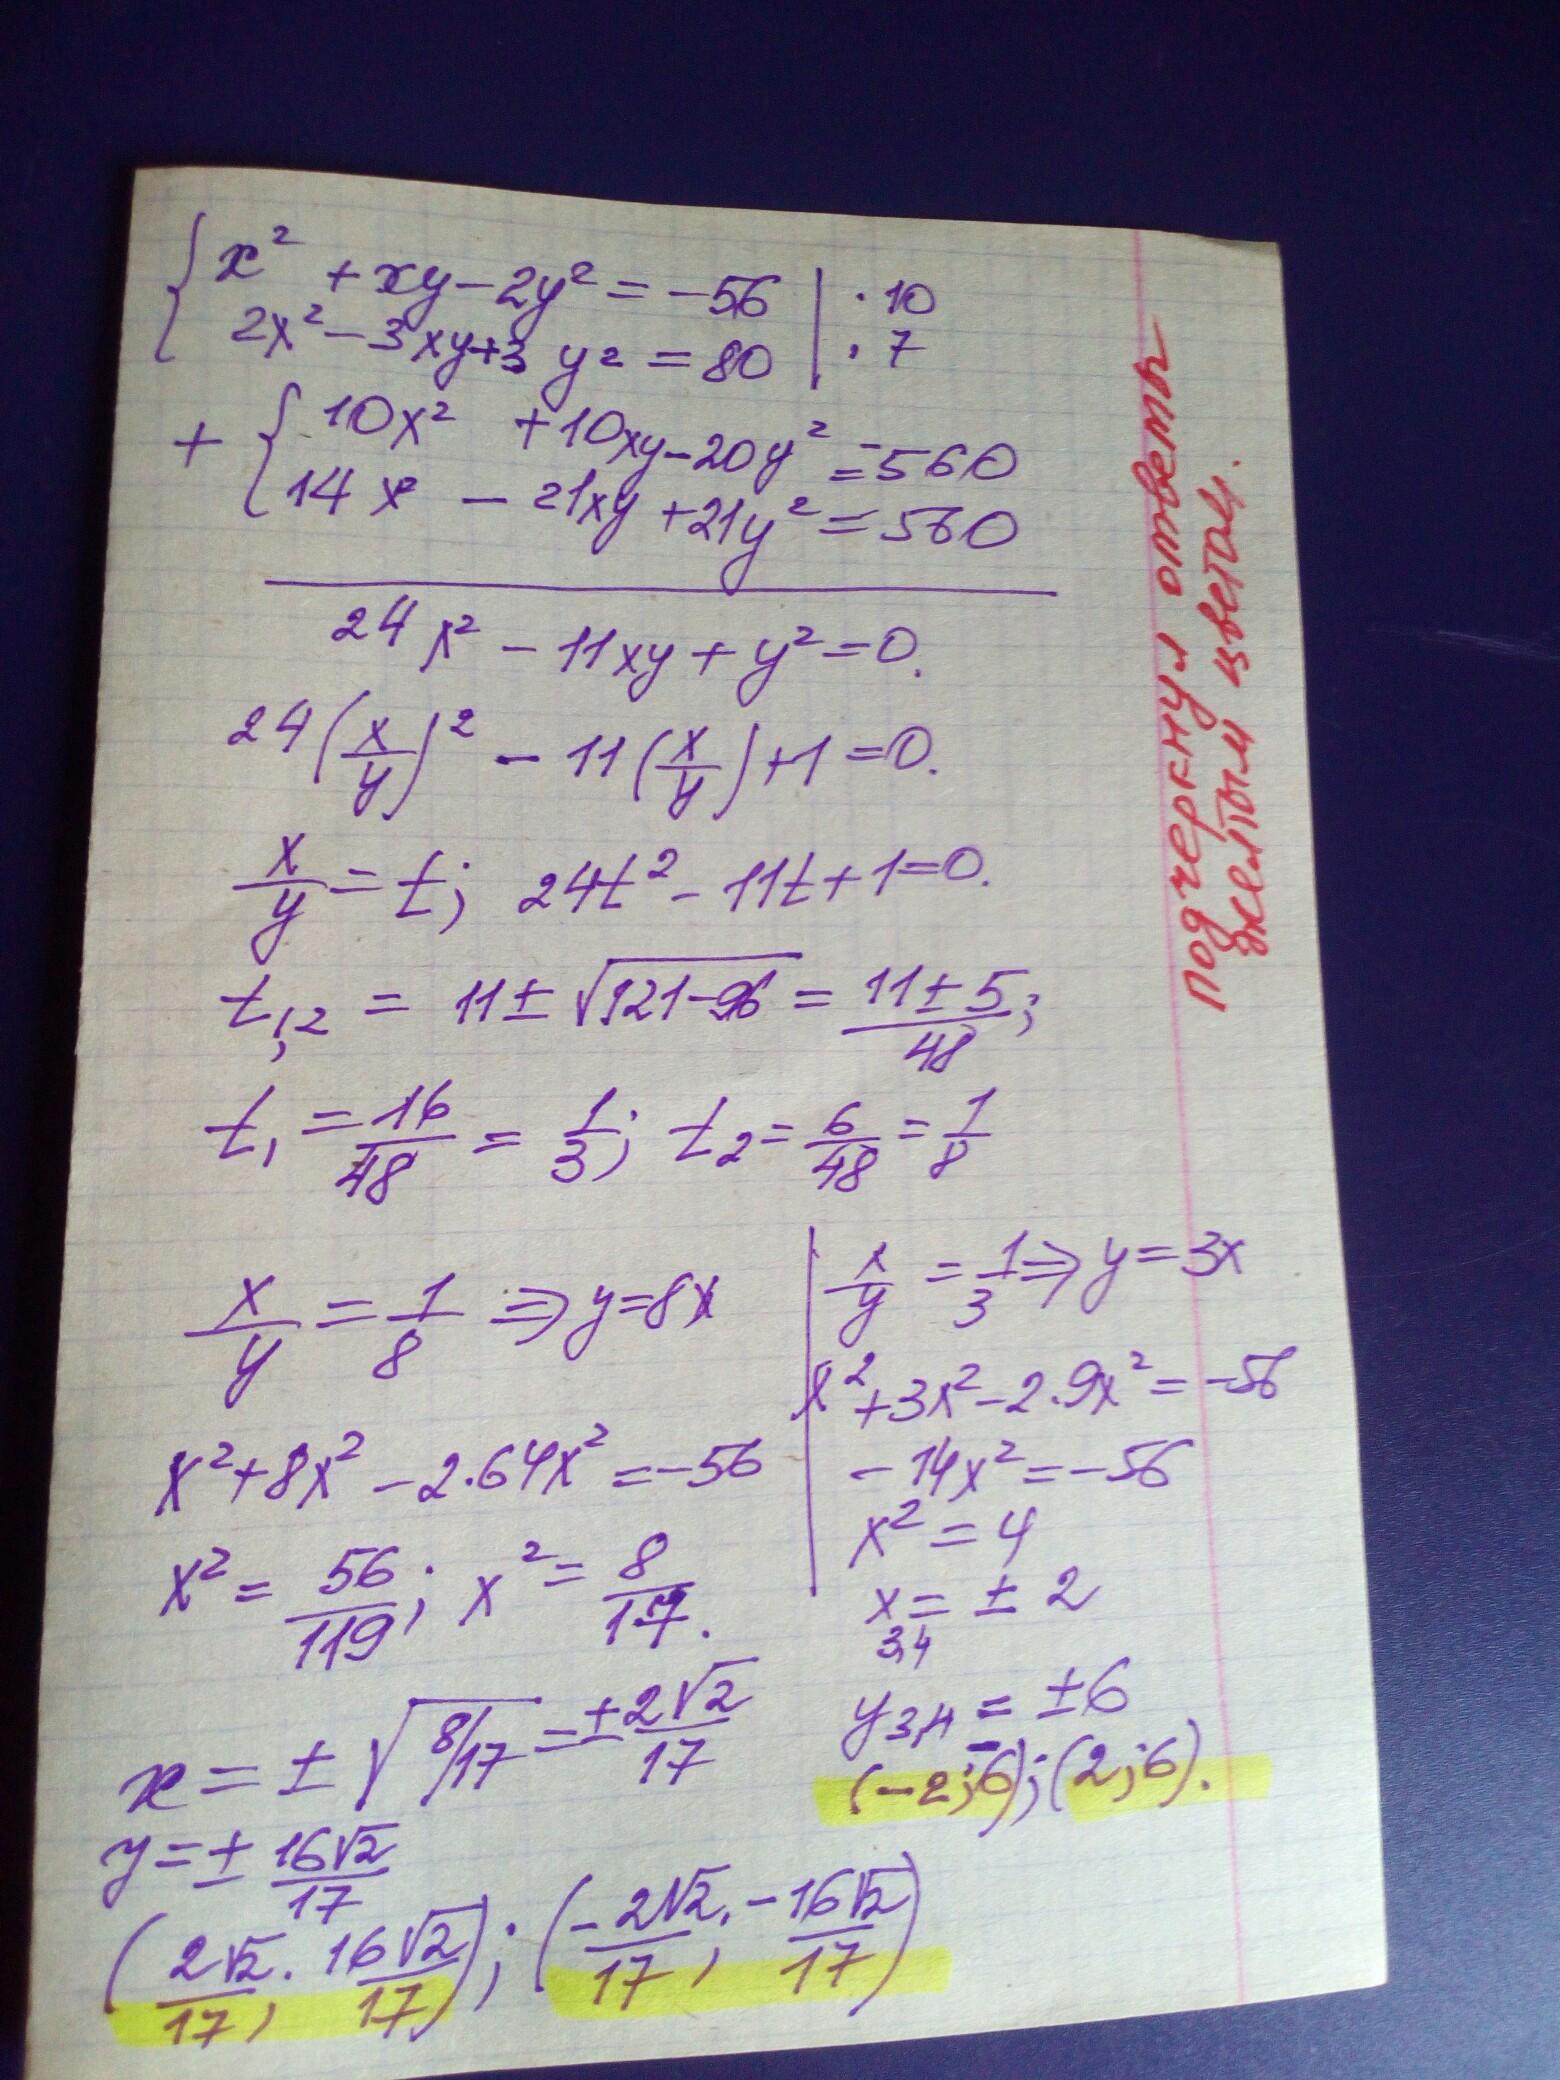 { x² + xy - 2y² = -56 | · 10
2x² - 3xy + 3 y² = 80 | · 7
+ { 10x² + 10xy - 20y² = -560
14x² - 21xy + 21y² = 560
24x² - 11xy + y² = 0.
24(x/y)² - 11(x/y) + 1 = 0.
x/y = t; 24t² - 11t + 1 = 0.
t1,2 = 11 ± √121-96 = 11 ± 5/48;
t1 = 16/48 = 1/3; t2 = 6/48 = 1/8
x/y = 1/8 ⇒ y = 8x
x² + 8x² - 2·64x² = -56
x² = 56/119; x² = 8/17.
x = ± √8/17 = ± 2√2/17
y = ± 16√2/17
(2√2/17; 16√2/17); (-2√2/17; -16√2/17)
x/y = 1/3 ⇒ y = 3x
x² + 3x² - 2·9x² = -56
-14x² = -56
x² = 4
x3,4 = ± 2
y3,4 = ±6
(-2; -6); (2; 6).
подчеркнул ответы
желтым цветом.